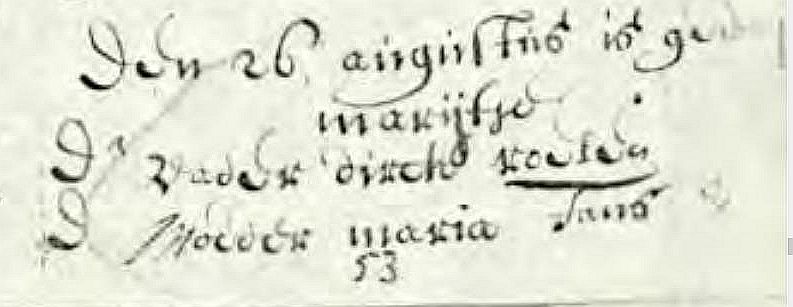 Den 26 augustus is ge
marijtje
Dr Vader dirck roelen
D Moeder maria Jans
53